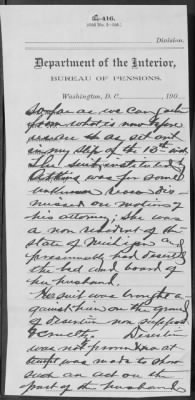 6-416.
Division.
Department of the Interior,
BUREAU OF PENSIONS.
Washington, D. C., 190
So far as we can gather
from what is now before
as set out
in my slip of the 13th inst.
The suit instituted by
was for some
reason dis
missed on motion of
his attorney; she was
a non resident of the
state of Michigan and
presumably had deserted
the bed and board of
her husband.
No suit was brought a
gainst him on the ground
of desertion non support
or cruelty. Desertion
was not proved nor at
tempt was made to show
such an act on the
part of the husband